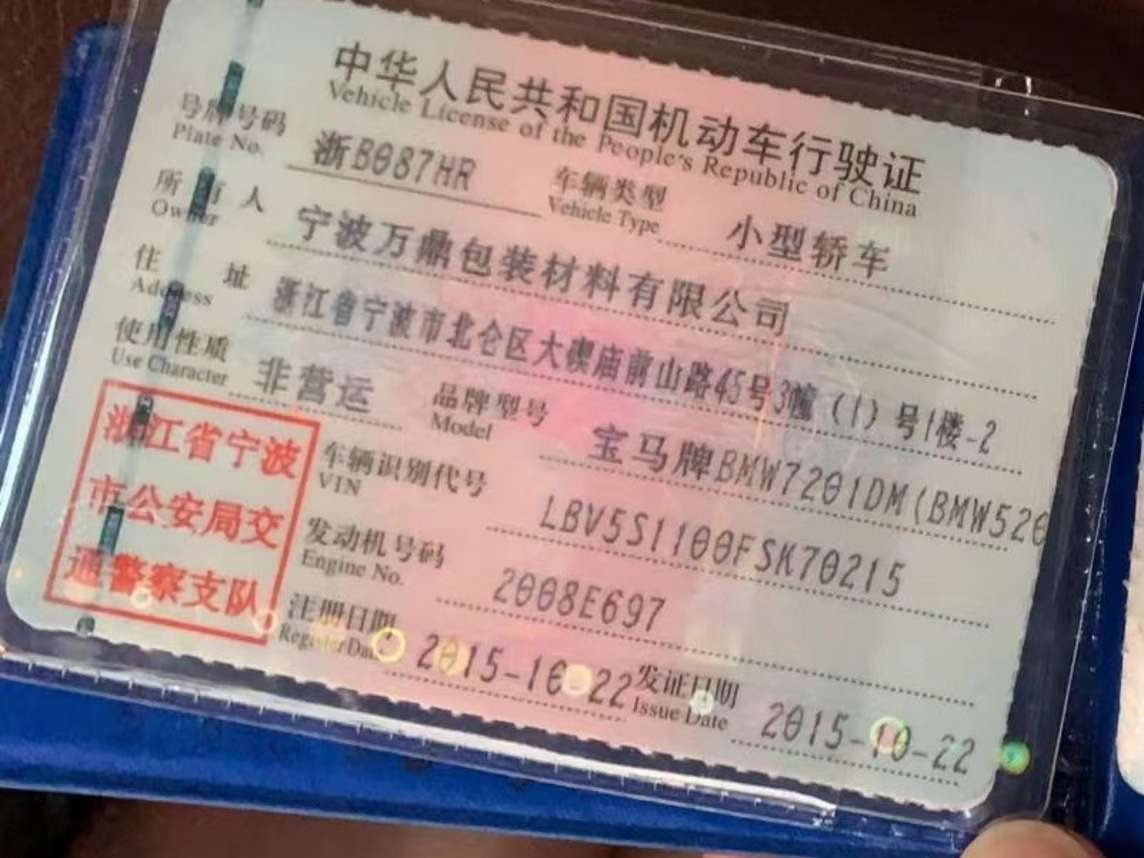 中华人民共和国机动车行驶证
Vehicle License of the People's Republic of China
号牌号码 浙B087HR 车辆类型 小型轿车
Plate No. Vehicle Type
所有人 宁波万鼎包装材料有限公司
Owner
住址 浙江省宁波市北仑区大碶庙前山路45号3幢(1)号1楼-2
Address
使用性质 非营运 品牌型号 宝马牌BMW7201DM(BMW520
Use Character Model
浙江省宁波
市公安局交
通警察支队
车辆识别代号 LBV5S1100FSK70215
VIN
发动机号码 2008E697
Engine No.
注册日期 2015-10-22 发证日期 2015-10-22
Register Date Issue Date